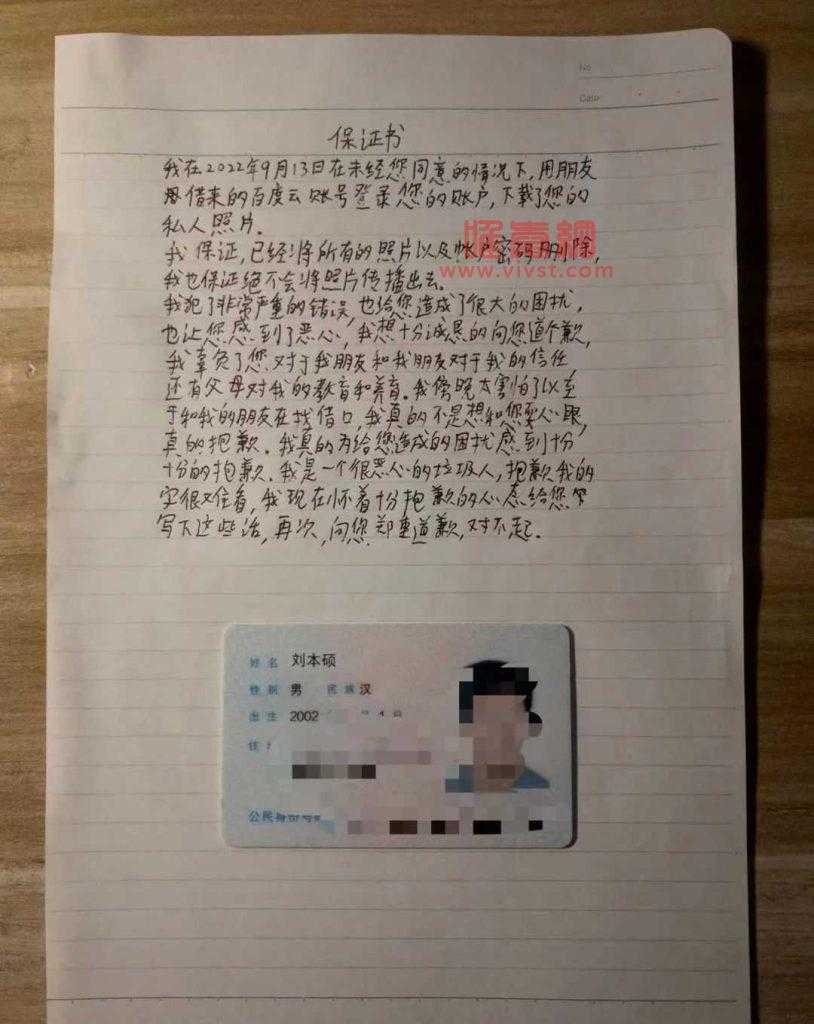 No
Date
保证书
我在2022年9月13日在未经您同意的情况下,用朋友
借来的百度云账号登录您的账户,下载了您的
私人照片.
我保证,已经将所有的照片以及帐户密码删除,
我也保证绝不会将照片传播出去.
我犯了非常严重的错误,也给您造成了很大的困扰,
也让您感到了恶心,我想十分诚恳的向您道个歉,
我辜负了您对于我朋友和我朋友对于我的信任
还有父母对我的教育和养育.我傍晚太害怕了以至
于和我的朋友在找借口,我真的不是想和您耍心眼,
真的抱歉.我真的为给您造成的困扰感到十分
十分的抱歉.我是一个很恶心的垃圾人,抱歉我的
字很难看,我现在怀着十分抱歉的心态给您
写下这些话,再次,向您郑重道歉,对不起.
怪毒網
www.vivst.com
姓名 刘本硕
性别 男 民族 汉
出生 2002
住
公民身份号码